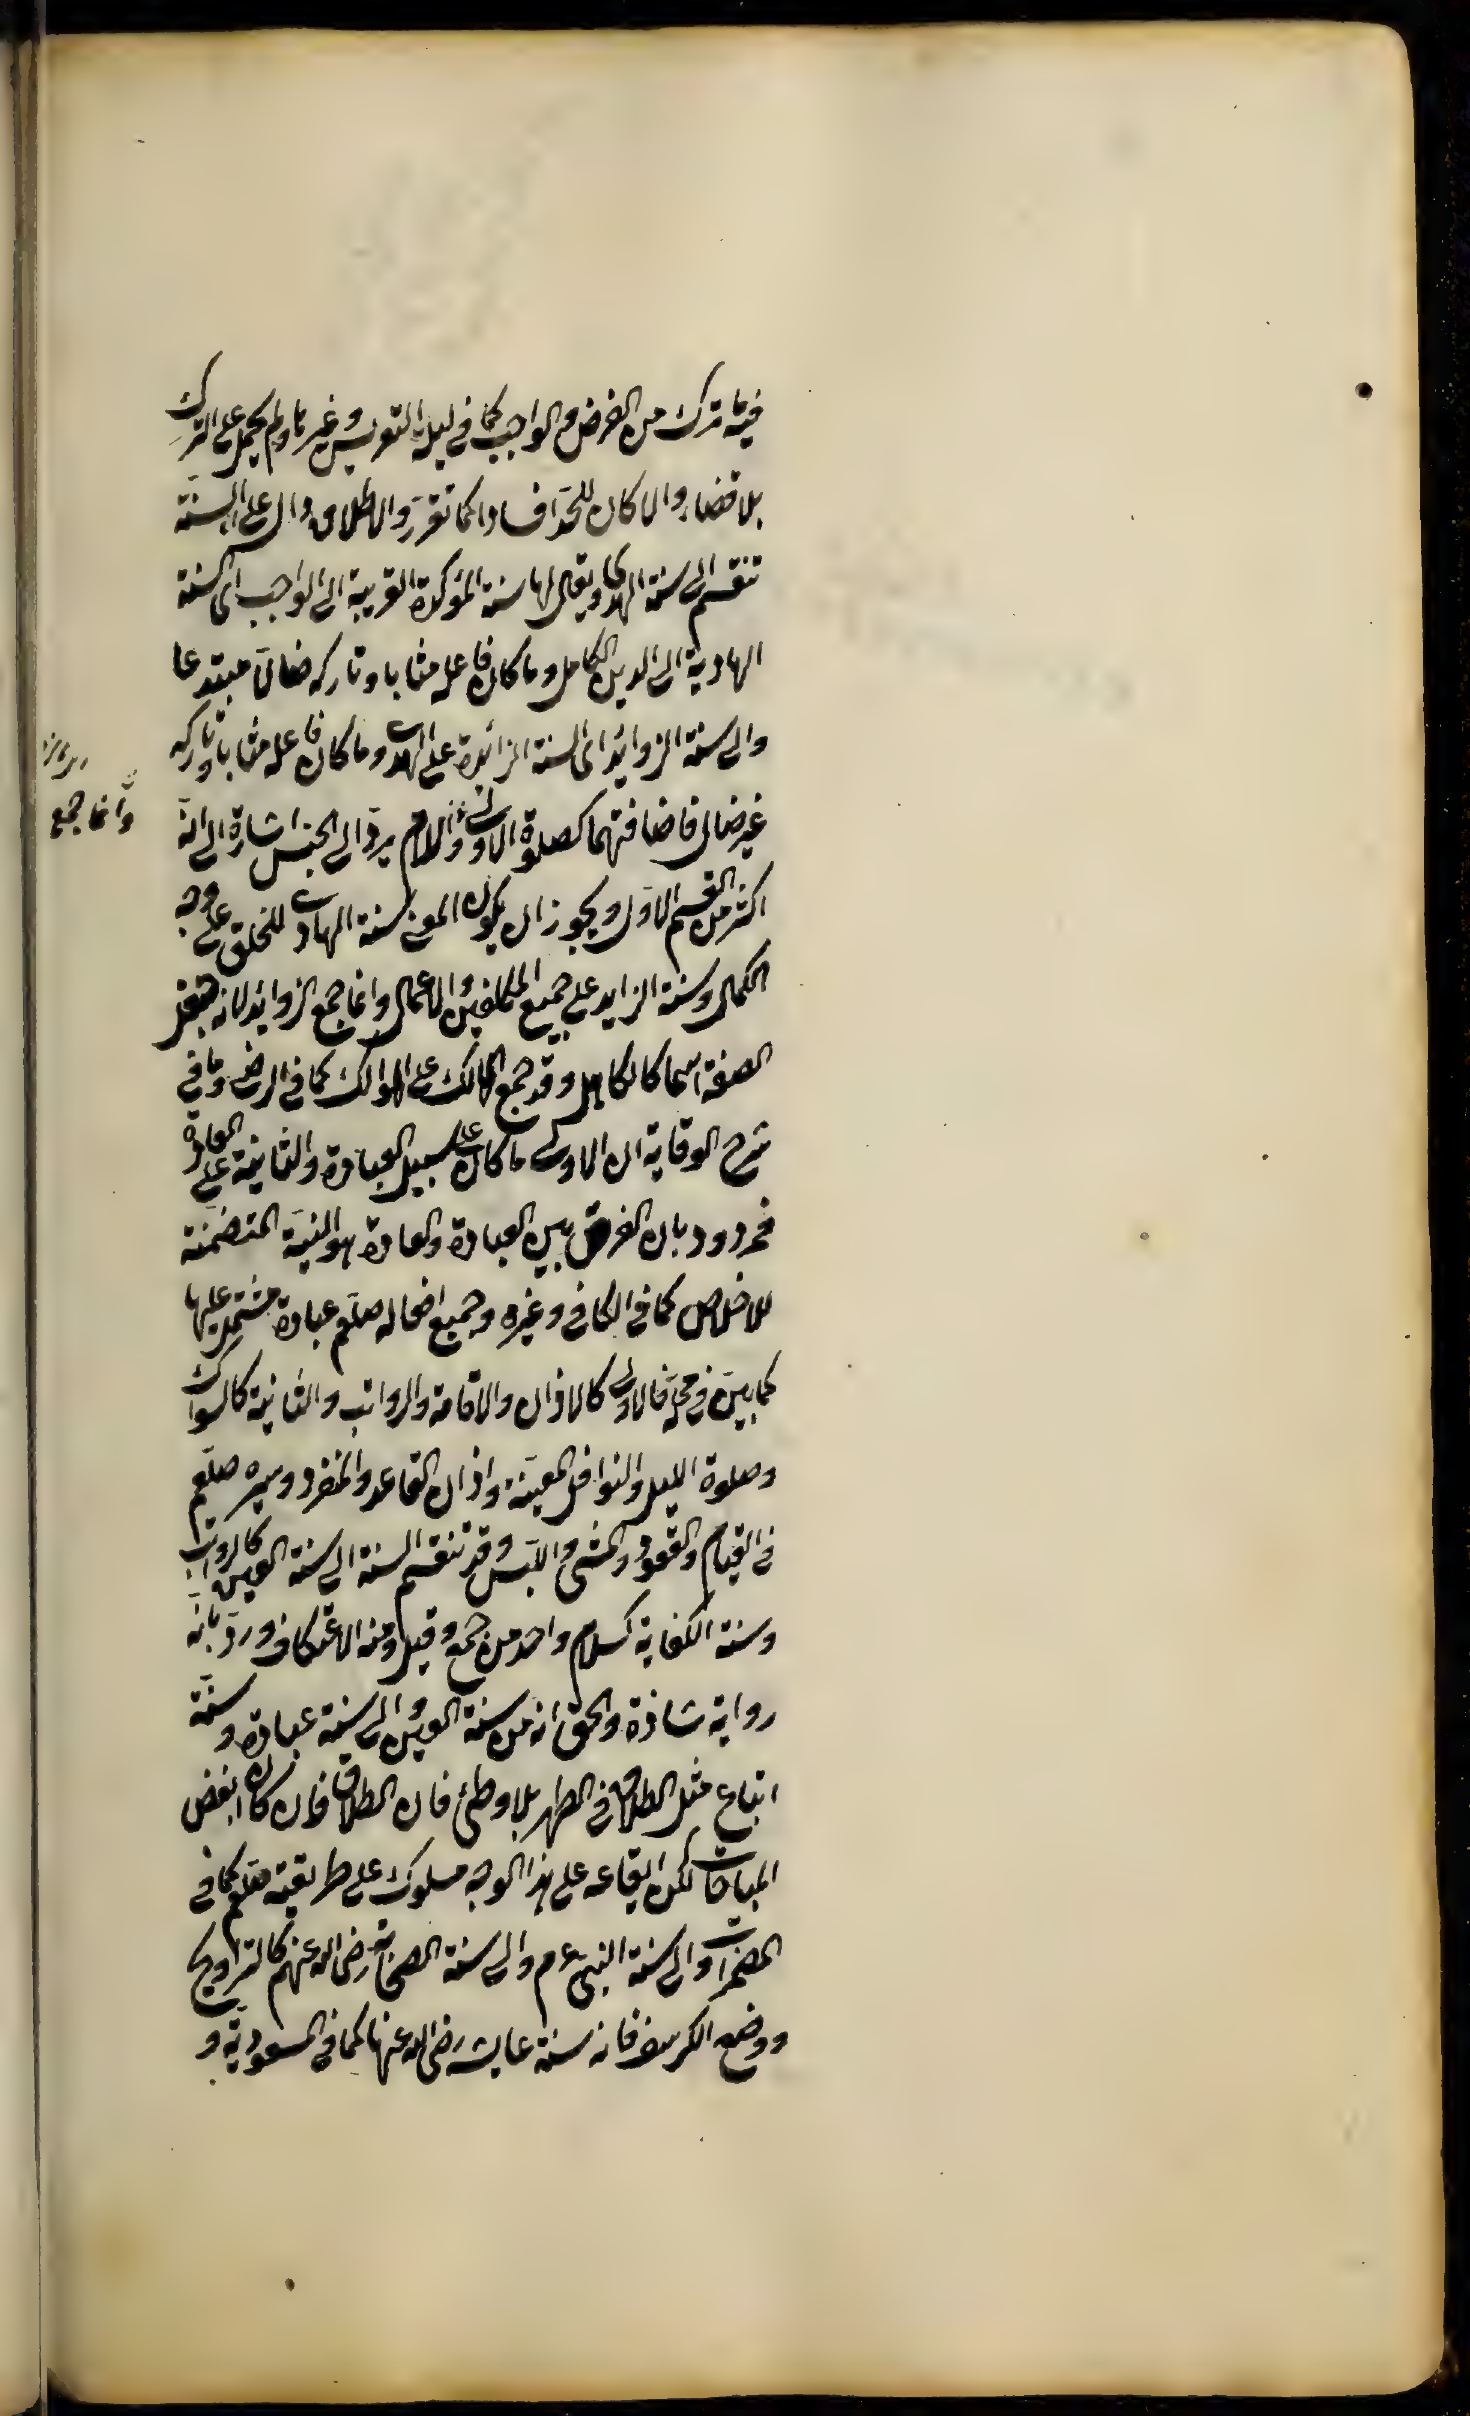 فيما ترك من الفرض والواجب كما في ليلة التعريس وغيرها ولم يحمل على الترك
بلا قضاء والا كان للحد افسادا كما تقرر والاطلاق دال على ان السنة
تنقسم الى سنة الهدى ويقال لها سنة المؤكدة القريبة الى الواجب اى السنة
الهادية الى الدين الكامل وما كان فاعله مثابا وتاركه ضالا مبتدعا
والى سنة الزوائد اى السنة الزائدة على الهدى وما كان فاعله مثابا وتاركه
غير ضال فاضافتهما كصلوة الاولى واللام يرد الى الجنس اشارة الى انه
اكثر من القسم الاول ويجوز ان يكون المعنى سنة الهادى للخلق على وجه
الكمال وسنة الزايد على جميع المكلفين في الاعمال وانما جمع الزوائد لانه جعل
الصفة اسما كالكاهل وقد جمع الهالك على الهوالك كما في الرضى وما في
شرح الوقاية ان الاولى ما كان على سبيل العبادة والثانية على العادة
فمردود بان الفرق بين العبادة والعادة هو النية المتضمنة
للاخلاص كما في الكافى وغيره وجميع افعاله صلعم عبادة مشتمل عليها
كما بين في محله فالاولى كالاذان والاقامة والرواتب والثانية كالسواك
وصلوة الليل والنوافل المعينة واذان القاعد والمنفرد وسيره صلعم
في القيام والقعود والمشى واللبس وقد تنقسم السنة الى سنة العين كالرواتب
وسنة الكفاية كسلام واحد من جمع وقيل ومنه الاعتكاف ورد بانه
رواية شاذة والحق انه من سنة العين والى سنة عبادة وسنة
اتباع مثل الطلاق في الطهر بلا وطئ فان الطلاق وان كان ابغض
المباحات لكن ايقاعه على هذا الوجه مسلوك على طريقته صلعم كما في
المضمرات والى سنة النبى عم والى سنة الصحابة رضى الله عنهم كالتراويح
ووضع الكرسف فانه سنة عايشة رضى الله عنها كما في المسعودية و
وانما جمع